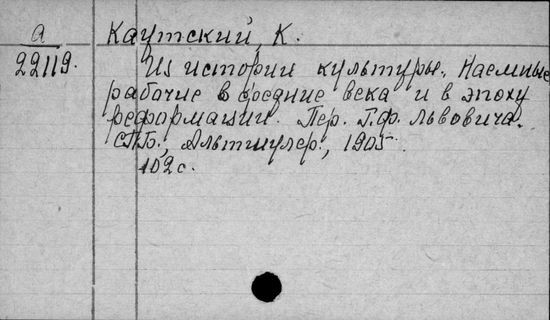 а
22119.
Каутский, К.
Из истории культуры. Наемные
рабочие в средние века и в эпоху
реформации. Пер. Г.Ф. Львовича.
СПБ., Альтшулер, 1905.
102 с.